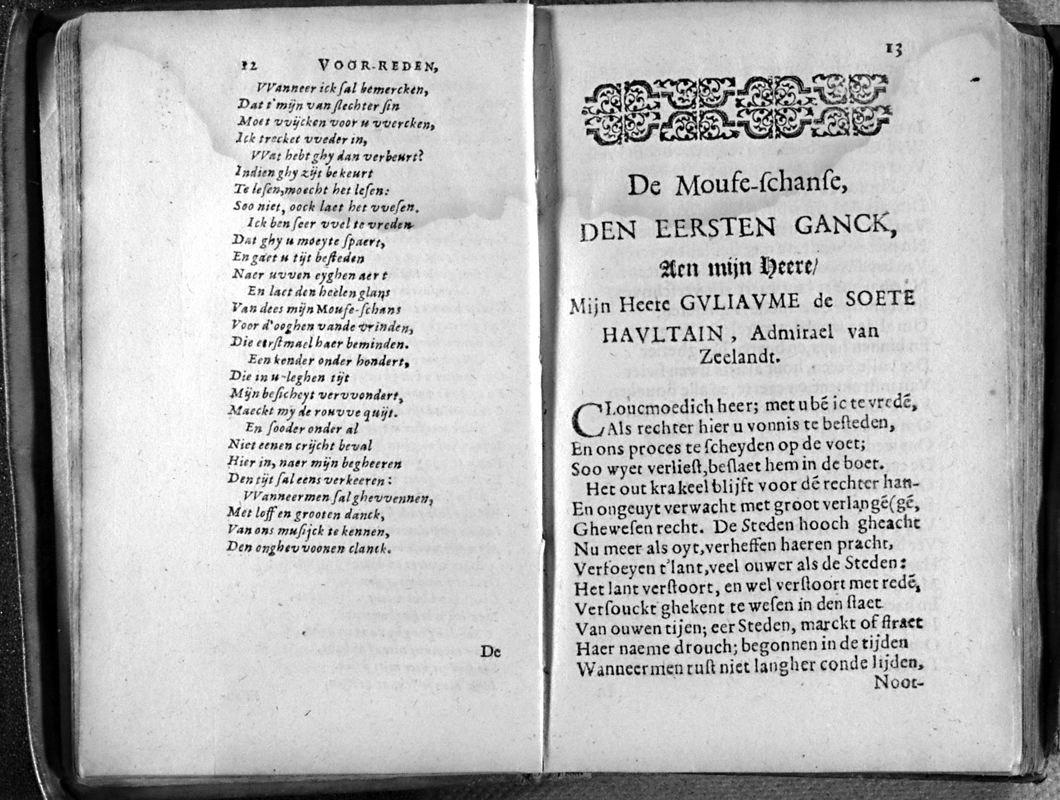 12 VOOR-REDEN,
VVanneer ick ſal bemercken,
Dat t'mijn van ſlechter ſin
Moet vvijcken voor u vvercken,
Ick trecket vveder in,
VVat hebt ghy dan verbeurt?
Indien ghy zijt bekeurt
Te leſen, moecht het leſen:
Soo niet, oock laet het vveſen.
Ick ben ſeer vvel te vreden
Dat ghy u moeyte ſpaert,
En gaet u tijt beſteden
Naer uvven eyghen aert
En laet den heelen glans
Van dees mijn Mouſe-ſchans
Voor d'ooghen vande vrinden,
Die eerſtmael haer beminden.
Een kender onder hondert,
Die in u-leghen tijt
Mijn beſicheyt vervvondert,
Maeckt my de rouvve quijt.
En ſooder onder al
Niet eenen crijcht beval
Hier in, naer mijn begheeren
Den tijt ſal eens verkeeren:
VVanneer men ſal ghevvennen,
Met loff en grooten danck,
Van ons muſijck te kennen,
Den onghevvoonen clanck.
De
13
De Mouſe-ſchanſe,
DEN EERSTEN GANCK,
Aen mijn Heere/
Mijn Heere GVLIAVME de SOETE
HAVLTAIN, Admirael van
Zeelandt.
CLoucmoedich heer; met u bē ic te vredē,
Als rechter hier u vonnis te beſteden,
En ons proces te ſcheyden op de voet;
Soo wyet verlieſt, beſlaet hem in de boet.
Het out krakeel blijft voor dē rechter han-
En ongeuyt verwacht met groot verlangē(gē,
Gheweſen recht. De Steden hooch gheacht
Nu meer als oyt, verheffen haeren pracht,
Verfoeyen t'lant, veel ouwer als de Steden:
Het lant verſtoort, en wel verſtoort met redē,
Verſouckt ghekent te weſen in den ſtaet
Van ouwen tijen; eer Steden, marckt of ſtraet
Haer naeme drouch; begonnen in de tijden
Wanneer men ruſt niet langher conde lijden,
Noot-